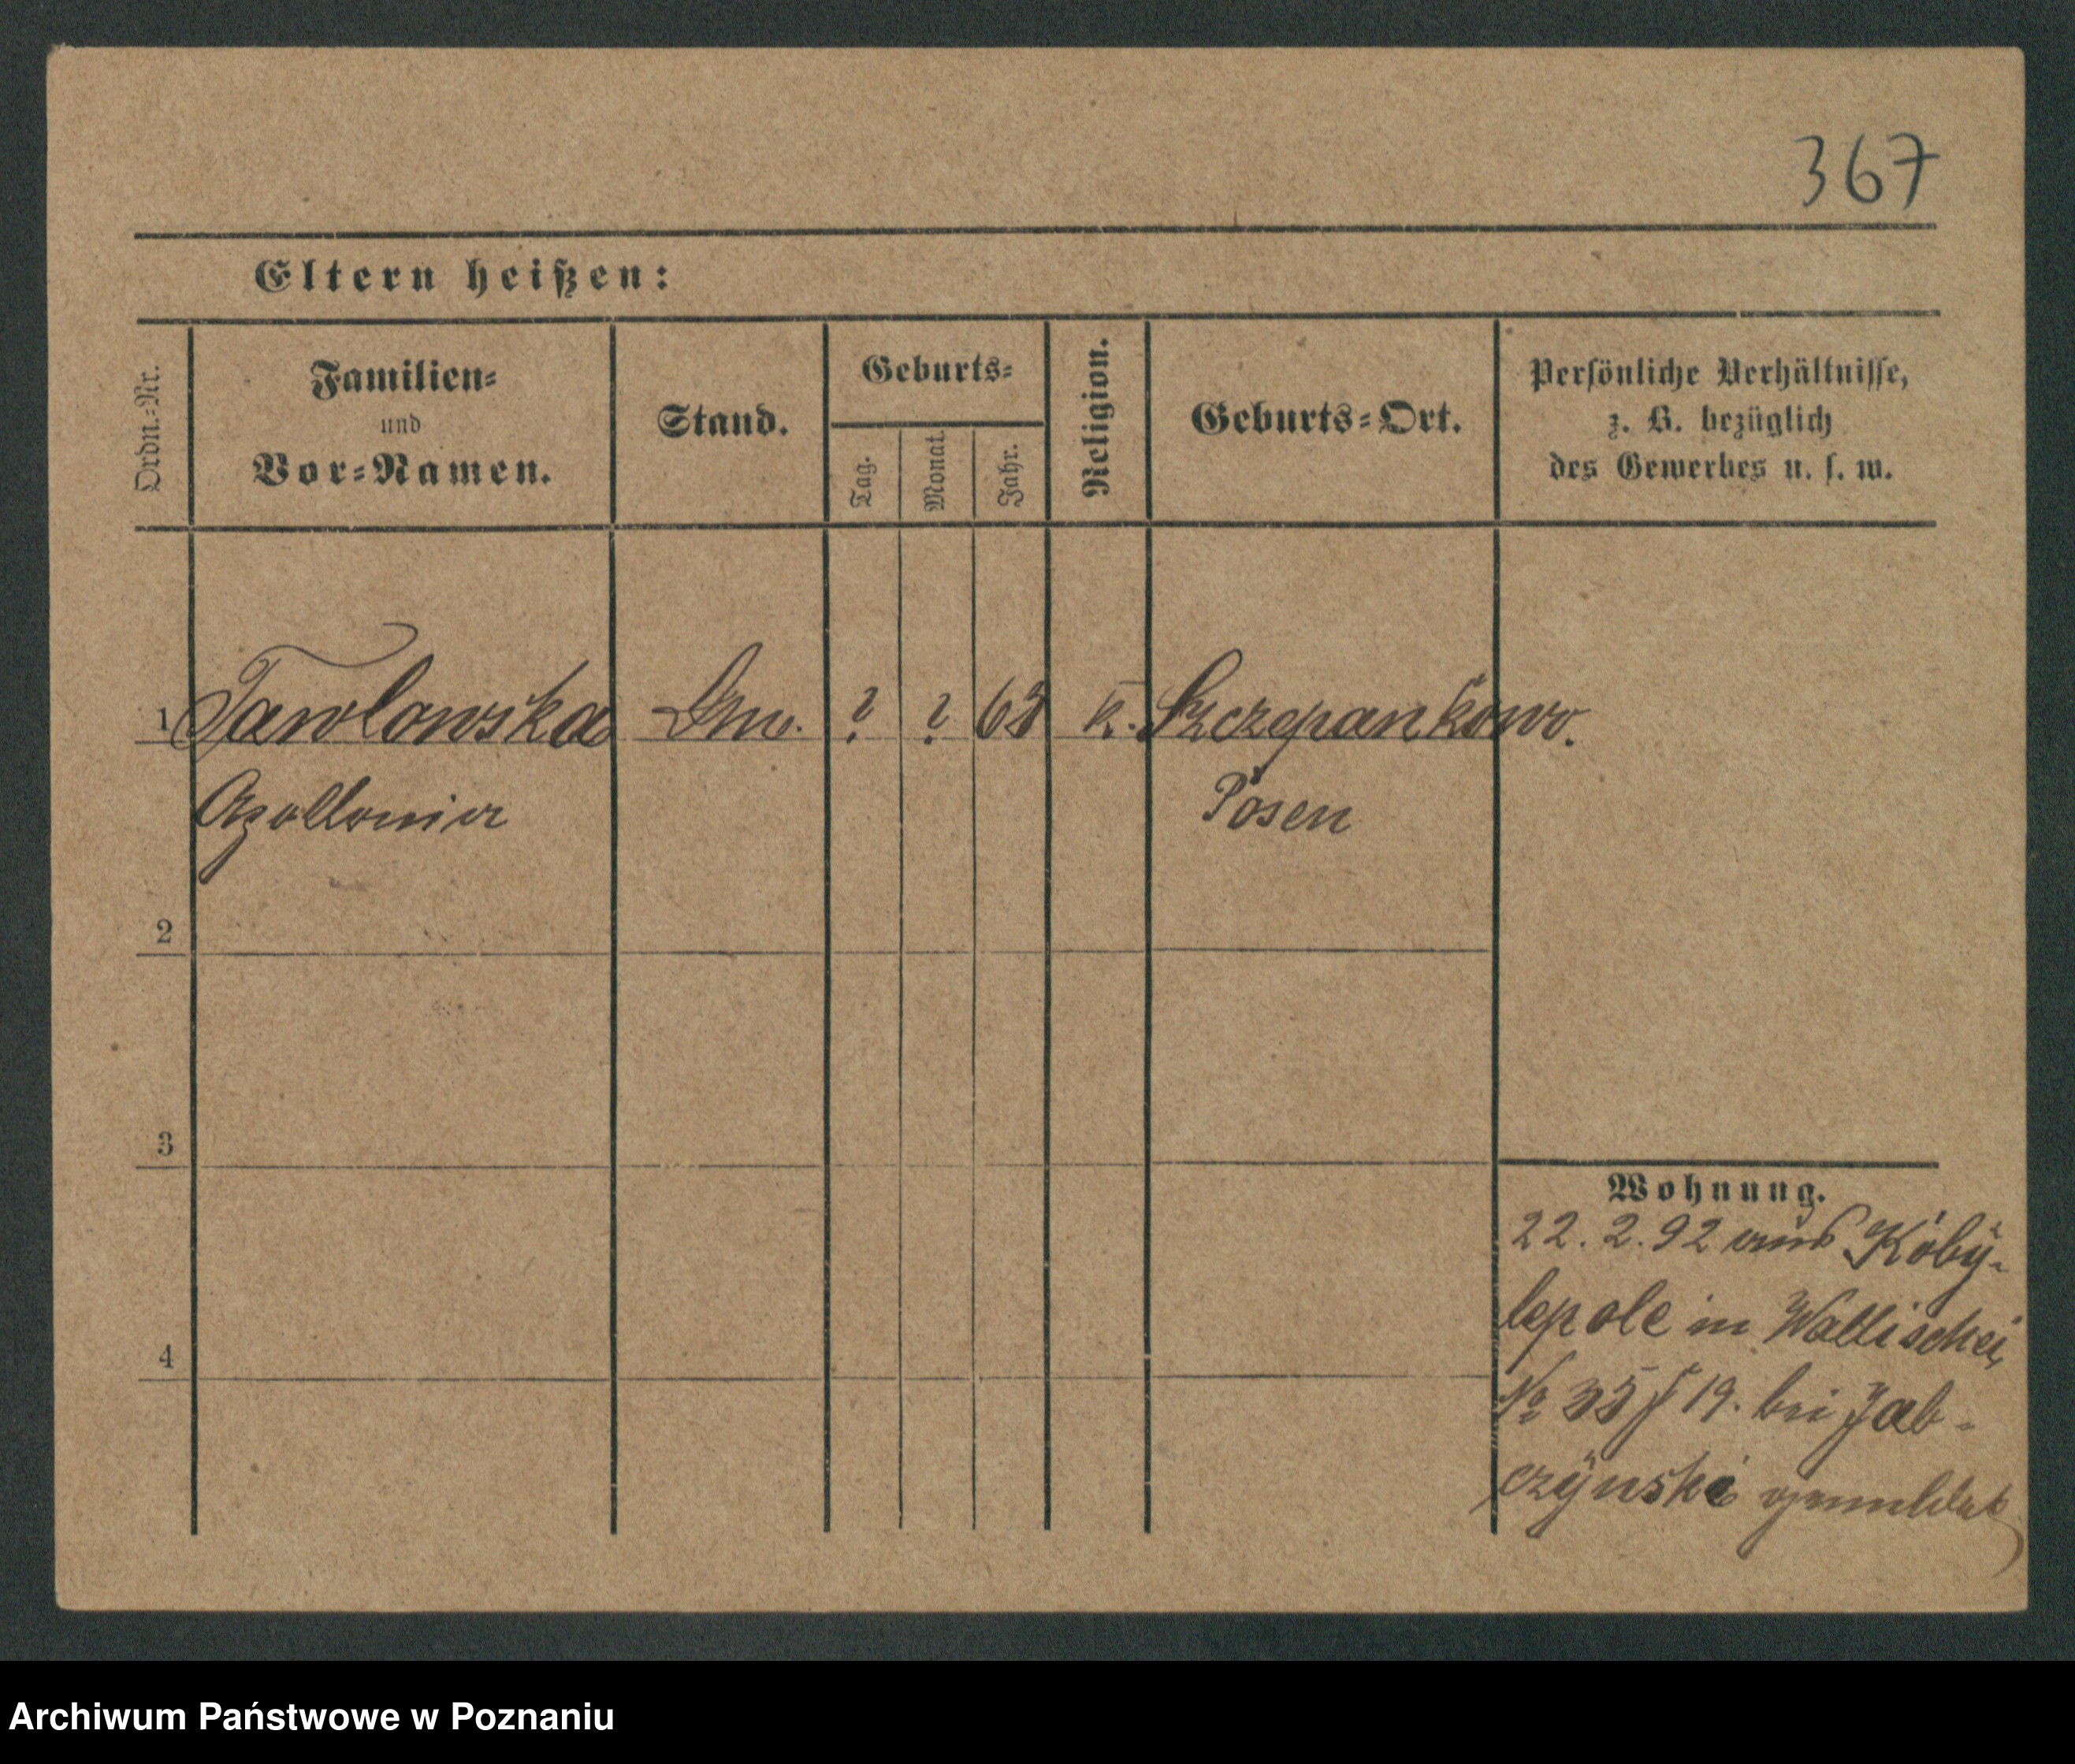 367
Eltern heißen:
Ordn.-Nr.
Familien-
und
Vor-Namen.
Stand.
Geburts-
Tag.
Monat.
Jahr.
Religion.
Geburts-Ort.
Persönliche Verhältnisse,
z. B. bezüglich
des Gewerbes u. s. w.
1 Pawlowska ? ? 63 k. Szczepankowo.
Apollonia Posen
2
3
4
Wohnung.
22. 2. 92 aus Koby-
lepole in Wallischei,
No 35 19. bei Jab-
czynski gemeldet
Archiwum Państwowe w Poznaniu